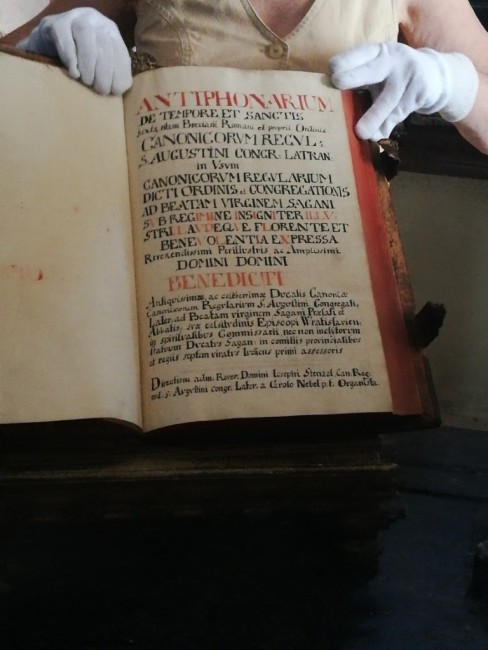 ANTIPHONARIUM
DE TEMPORE ET SANCTIS
ritum Breviarii Romani et proprii Ordinis
CANONICORVM REGVL:
S. AUGUSTINI CONGR. LATRAN.
in Usum
CANONICORVM REGVLARIUM
DICTI ORDINIS et CONGREGATIONIS
AD BEATAM VIRGINEM SAGANI
SVB REGIMINE INSIGNITER ILLV:
STRI LAVDEQVE FLORENTE ET
BENEVOLENTIA EXPRESSA
Reverendissimi Perillustris ac Amplissimi
DOMINI DOMINI
BENEDICTI
Antiquissimæ, ac celeberrimæ Ducalis Canoniæ
Canonicorum Regularium S. Augustini Congregati,
Later. ad Beatam virginem Sagani Prælati et
Abbatis, suæ celsitudinis Episcopi Wratislavien,
in spiritualibus Commissarii, nec non inclytorum
statuum Ducatus Sagan: in comitiis provincialibus
et regiis septem viratus Judicii primi assessoris
Directione adm. Rever. Domini Iosephi Stenzel Can. Reg.
S. Augustini congr. Later. a Carolo Nebel p.t. Organista.